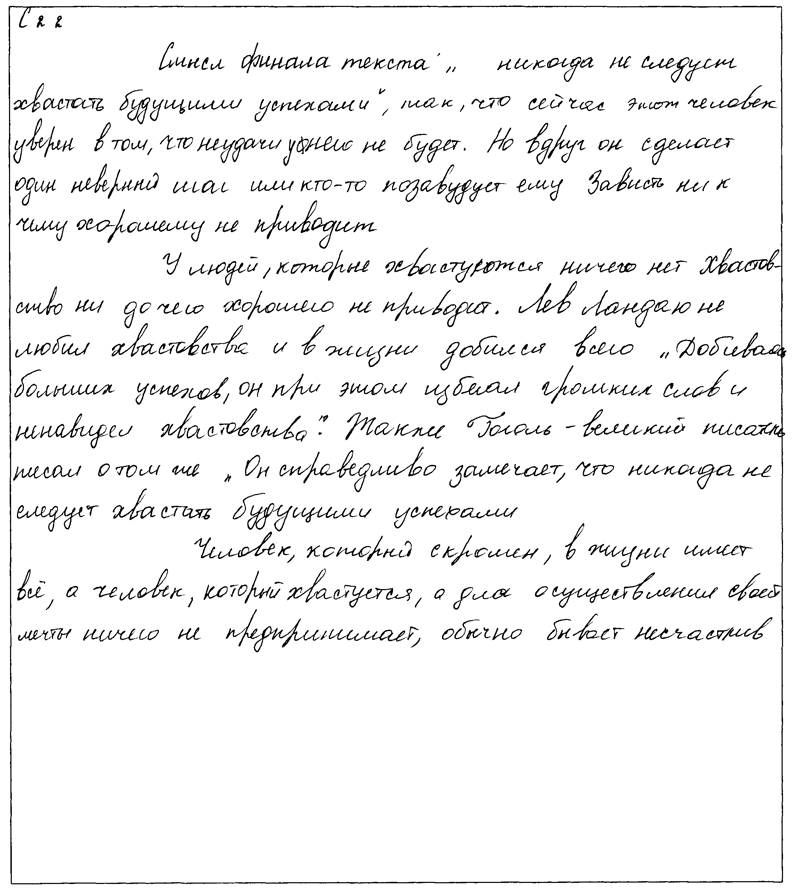 С 2 2
Смысл финала текста „ никогда не следует
хвастать будущими успехами", так, что сейчас этот человек
уверен в том, что неудачи у него не будет. Но вдруг он сделает
один неверный шаг или кто-то позавудует ему Зависть ни к
чему хорошему не приводит
У людей, которые хвастуются ничего нет Хвастов-
ство ни до чего хорошего не приводит. Лев Ландаю не
любил хвастовства и в жизни добился всего „Добиваясь
больших успехов, он при этом избегал громких слов и
ненавидел хвастовство". Также Гоголь - великий писатель
писал о том же „ Он справедливо замечает, что никогда не
следует хвастать будущими успехами
Человек, который скромен, в жизни имеет
всё, а человек, который хвастуется, а для осуществления своей
мечты ничего не предпринимает, обычно бывает несчастлив